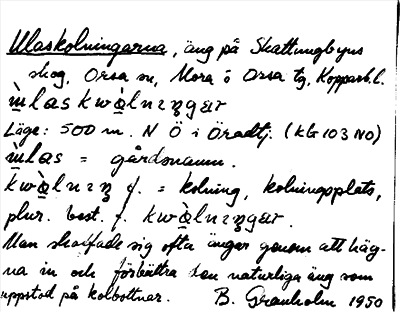 Ulaskolningarna, äng på Skattungbyns
skog, Orsa sn, Mora o Orsa tg, Kopparb. l.
ùlaskwàlnıŋgar
Läge: 500 m. N Ö i Öradtj. (KG 103 NO)
ùlas = gårdsnamn.
kwàlnıŋ f. = kolning, kolningsplats,
plur. best. f. kwàlnıŋgar.
Man skaffade sig ofta ängar genom att häg-
na in och förbättra den naturliga äng som
uppstod på kolbottnar. B. Granholm 1950